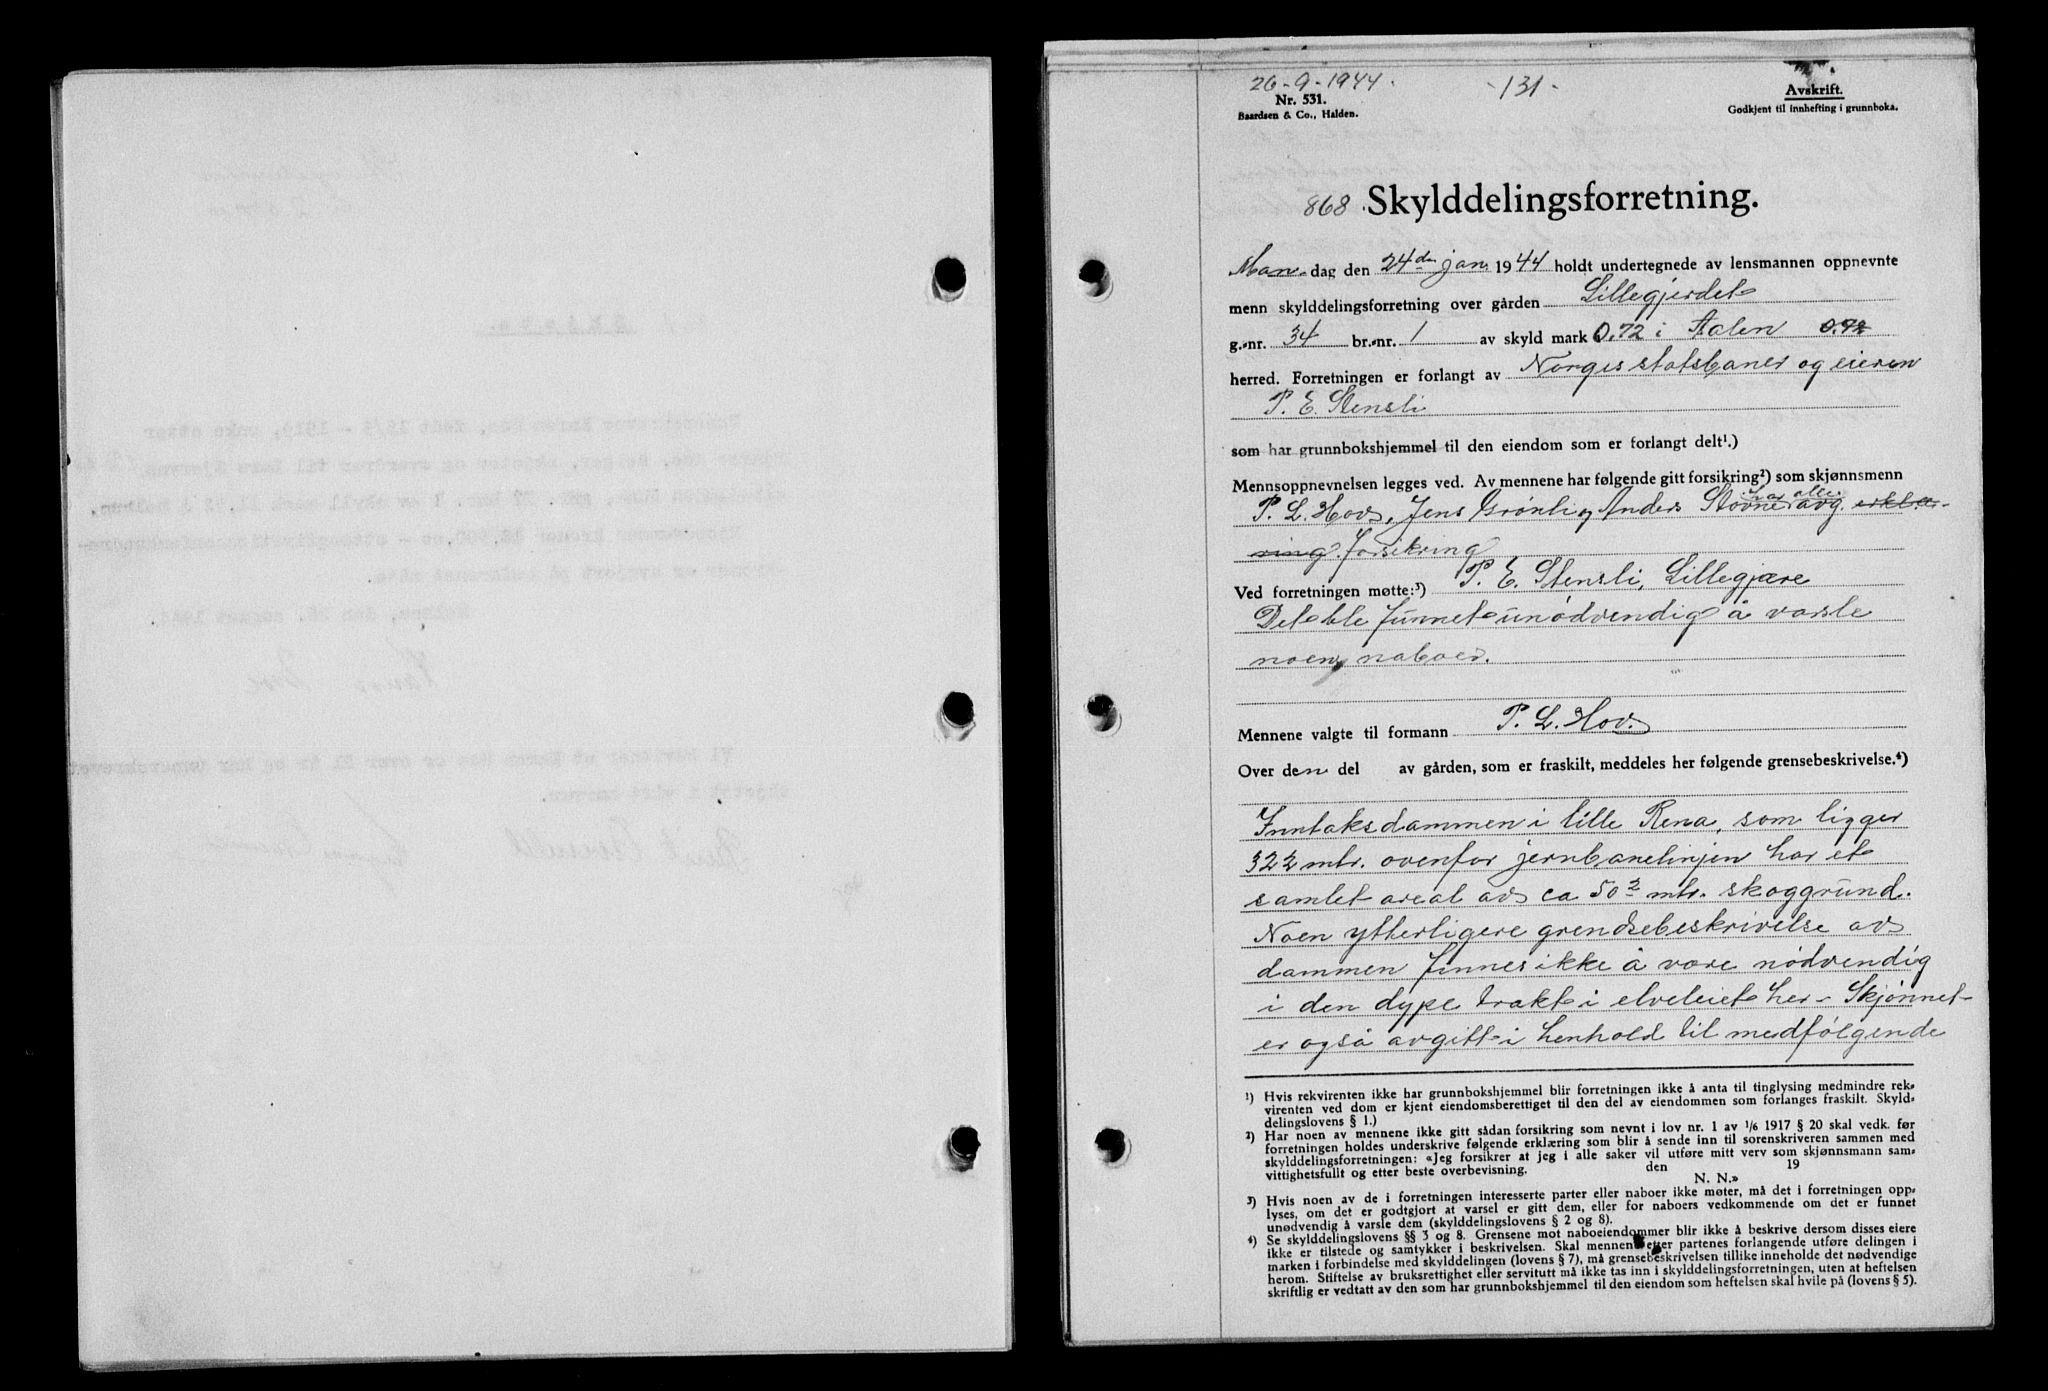 26-9-1944.
-131-
Nr. 531.
Baardsen & Co., Halden.
Avskrift.
Godkjent til innhefting i grunnboka.
868 Skylddelingsforretning.
Man-dag den 24de jan. 1944 holdt undertegnede av lensmannen oppnevnte
menn skylddelingsforretning over gården Lillegjerdet
g.-nr. 34 br.-nr. 1 av skyld mark 0.72 i Aalen 0.72
herred. Forretningen er forlangt av Norges statsbaner og eieren
P. E. Stensli
som har grunnbokshjemmel til den eiendom som er forlangt delt¹.)
Mennsoppnevnelsen legges ved. Av mennene har følgende gitt forsikring²) som skjønnsmenn
P. L. Hov, Jens Grønli og Anders Stovne har alle avg. erklæ-
ring forsikring
Ved forretningen møtte:³) P. E. Stensli, Lillegjære
Det ble funnet unødvendig å varsle
noen naboer.
Mennene valgte til formann P. L. Hov.
Over den del av gården, som er fraskilt, meddeles her følgende grensebeskrivelse.⁴)
Inntaksdammen i lille Rena, som ligger
322 mtr. ovenfor jernbanelinjen har et
samlet areal av ca 50 ² mtr. skoggrund.
Noen ytterligere grendsebeskrivelse av
dammen finnes ikke å være nødvendig
i den dype trakt i elveleiet her - Skjønnet
er også avgitt i henhold til medfølgende
¹) Hvis rekvirenten ikke har grunnbokshjemmel blir forretningen ikke å anta til tinglysing medmindre rek-
virenten ved dom er kjent eiendomsberettiget til den del av eiendommen som forlanges fraskilt. Skyld-
delingslovens § 1.)
²) Har noen av mennene ikke gitt sådan forsikring som nevnt i lov nr. 1 av 1/6 1917 § 20 skal vedk. før
forretningen holdes underskrive følgende erklæring som blir å sende inn til sorenskriveren sammen med
skylddelingsforretningen: «Jeg forsikrer at jeg i alle saker vil utføre mitt verv som skjønnsmann sam-
vittighetsfullt og etter beste overbevisning. den 19
N. N.»
³) Hvis noen av de i forretningen interesserte parter eller naboer ikke møter, må det i forretningen opp-
lyses, om det er godtgjort at varsel er gitt dem, eller for naboers vedkommende om det er funnet
unødvendig å varsle dem (skylddelingslovens § 2 og 8).
⁴) Se skylddelingslovens §§ 3 og 8. Grensene mot naboeiendommer blir ikke å beskrive dersom disses eiere
ikke er tilstede og samtykker i beskrivelsen. Skal mennene etter partenes forlangende utføre delingen i
marken i forbindelse med skylddelingen (lovens § 7), må grensebeskrivelsen tillike inneholde det nødvendige
herom. Stiftelse av bruksrettighet eller servitutt må ikke tas inn i skylddelingsforretningen, uten at heftelsen
skriftlig er vedtatt av den som har grunnbokshjemmel til den eiendom som heftelsen skal hvile på (lovens § 5).